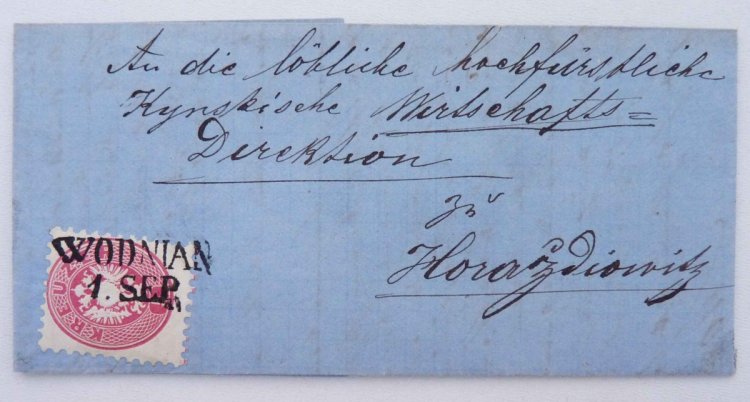 An die löbliche hochfürstliche
Kynskische Wirtschafts=
Direktion
zu
Horaždiowitz
WODNIAN
1. SEP.
KREU